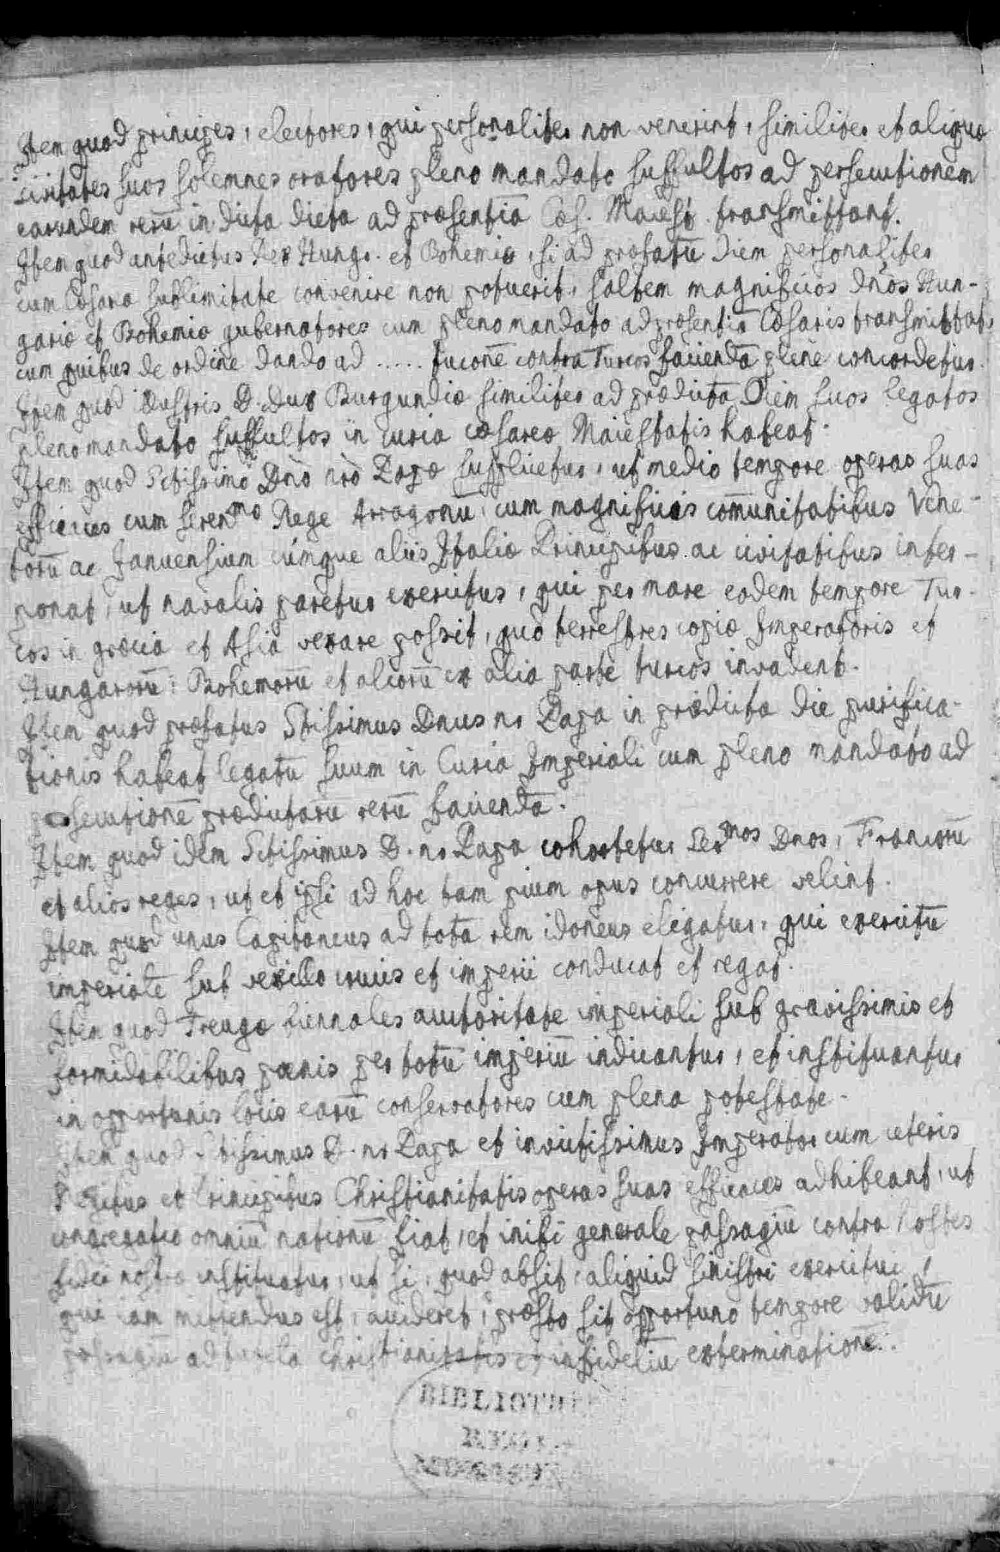 Item quod principes, electores, qui personaliter non venerint, similiter et aliquae
civitates suos solemnes oratores pleno mandato suffultos ad persecutionem
earundem rerū in dicta dieta ad praesentiā Caes. Maiest. transmittant.
Item quod antedictus Rex Hung. et Bohemiae, si ad praefatū diem personaliter
cum Caesarea sublimitate convenire non potuerit, saltem magnificos dños Hun-
gariae et Bohemiae gubernatores cum pleno mandato ad praesentiā Caesaris transmittat,
cum quibus de ordine dando ad ..... tucionē contra Turcos facienda plene concordetur.
Item quod illustris D. Dux Burgundiae similiter ad praedictā diem suos legatos
pleno mandato suffultos in curia caesareae Maiestatis habeat.
Item quod Sctissimo Dño nrō Papae supplicetur, ut medio tempore operas suas
efficaces cum seren^mo Rege Arragonū, cum magnificis comūnitatibus Vene-
torū ac Januensium cumque aliis Italiae Principibus ac civitatibus inter-
ponat, ut navalis paretur exercitus, qui per mare eodem tempore Tur-
cos in graecia et Asia vexare possit, quo terrestres copiae Imperatoris et
Hungarorū, Bohemorū et aliorū ex alia parte turcos invadent.
Item quod praefatus Sctissimus Dnus nr Papa in praedicta die purifica-
tionis habeat legatū suum in Curia Imperiali cum pleno mandato ad
prosecutionē praedictarū rerū faciendā.
Item quod idem Sctissimus D. nr Papa cohortetur Ser^mos Dnos, Francorū
et alios reges, ut et ipsi ad hoc tam pium opus concurrere velint.
Item quod unus Capitaneus ad totā rem idoneus eligatur, qui exercitū
imperialē sub vexillo crucis et imperii conducat et regat.
Item quod Treugae biennales auctoritate imperiali sub gravissimis et
formidabilibus poenis per totū imperiū indicantur, et instituantur
in opportunis locis earū conservatores cum plena potestate.
Item quod Sctissimus D. nr Papa et invictissimus Imperator cum ceteris
Regibus et Principibus Christianitatis operas suas efficaces adhibeant, ut
congregatio omniū nationū fiat, et inibi generale passagiū contra hostes
fidei nostrae instituatur, ut si, quod absit, aliquid sinistri exercitui,
qui iam mittendus est, accideret, praesto sit opportuno tempore validū
passagiū ad tutelā christianitatis et infideliū exterminationē.
BIBLIOTHECA
REGIA
MONACENSIS